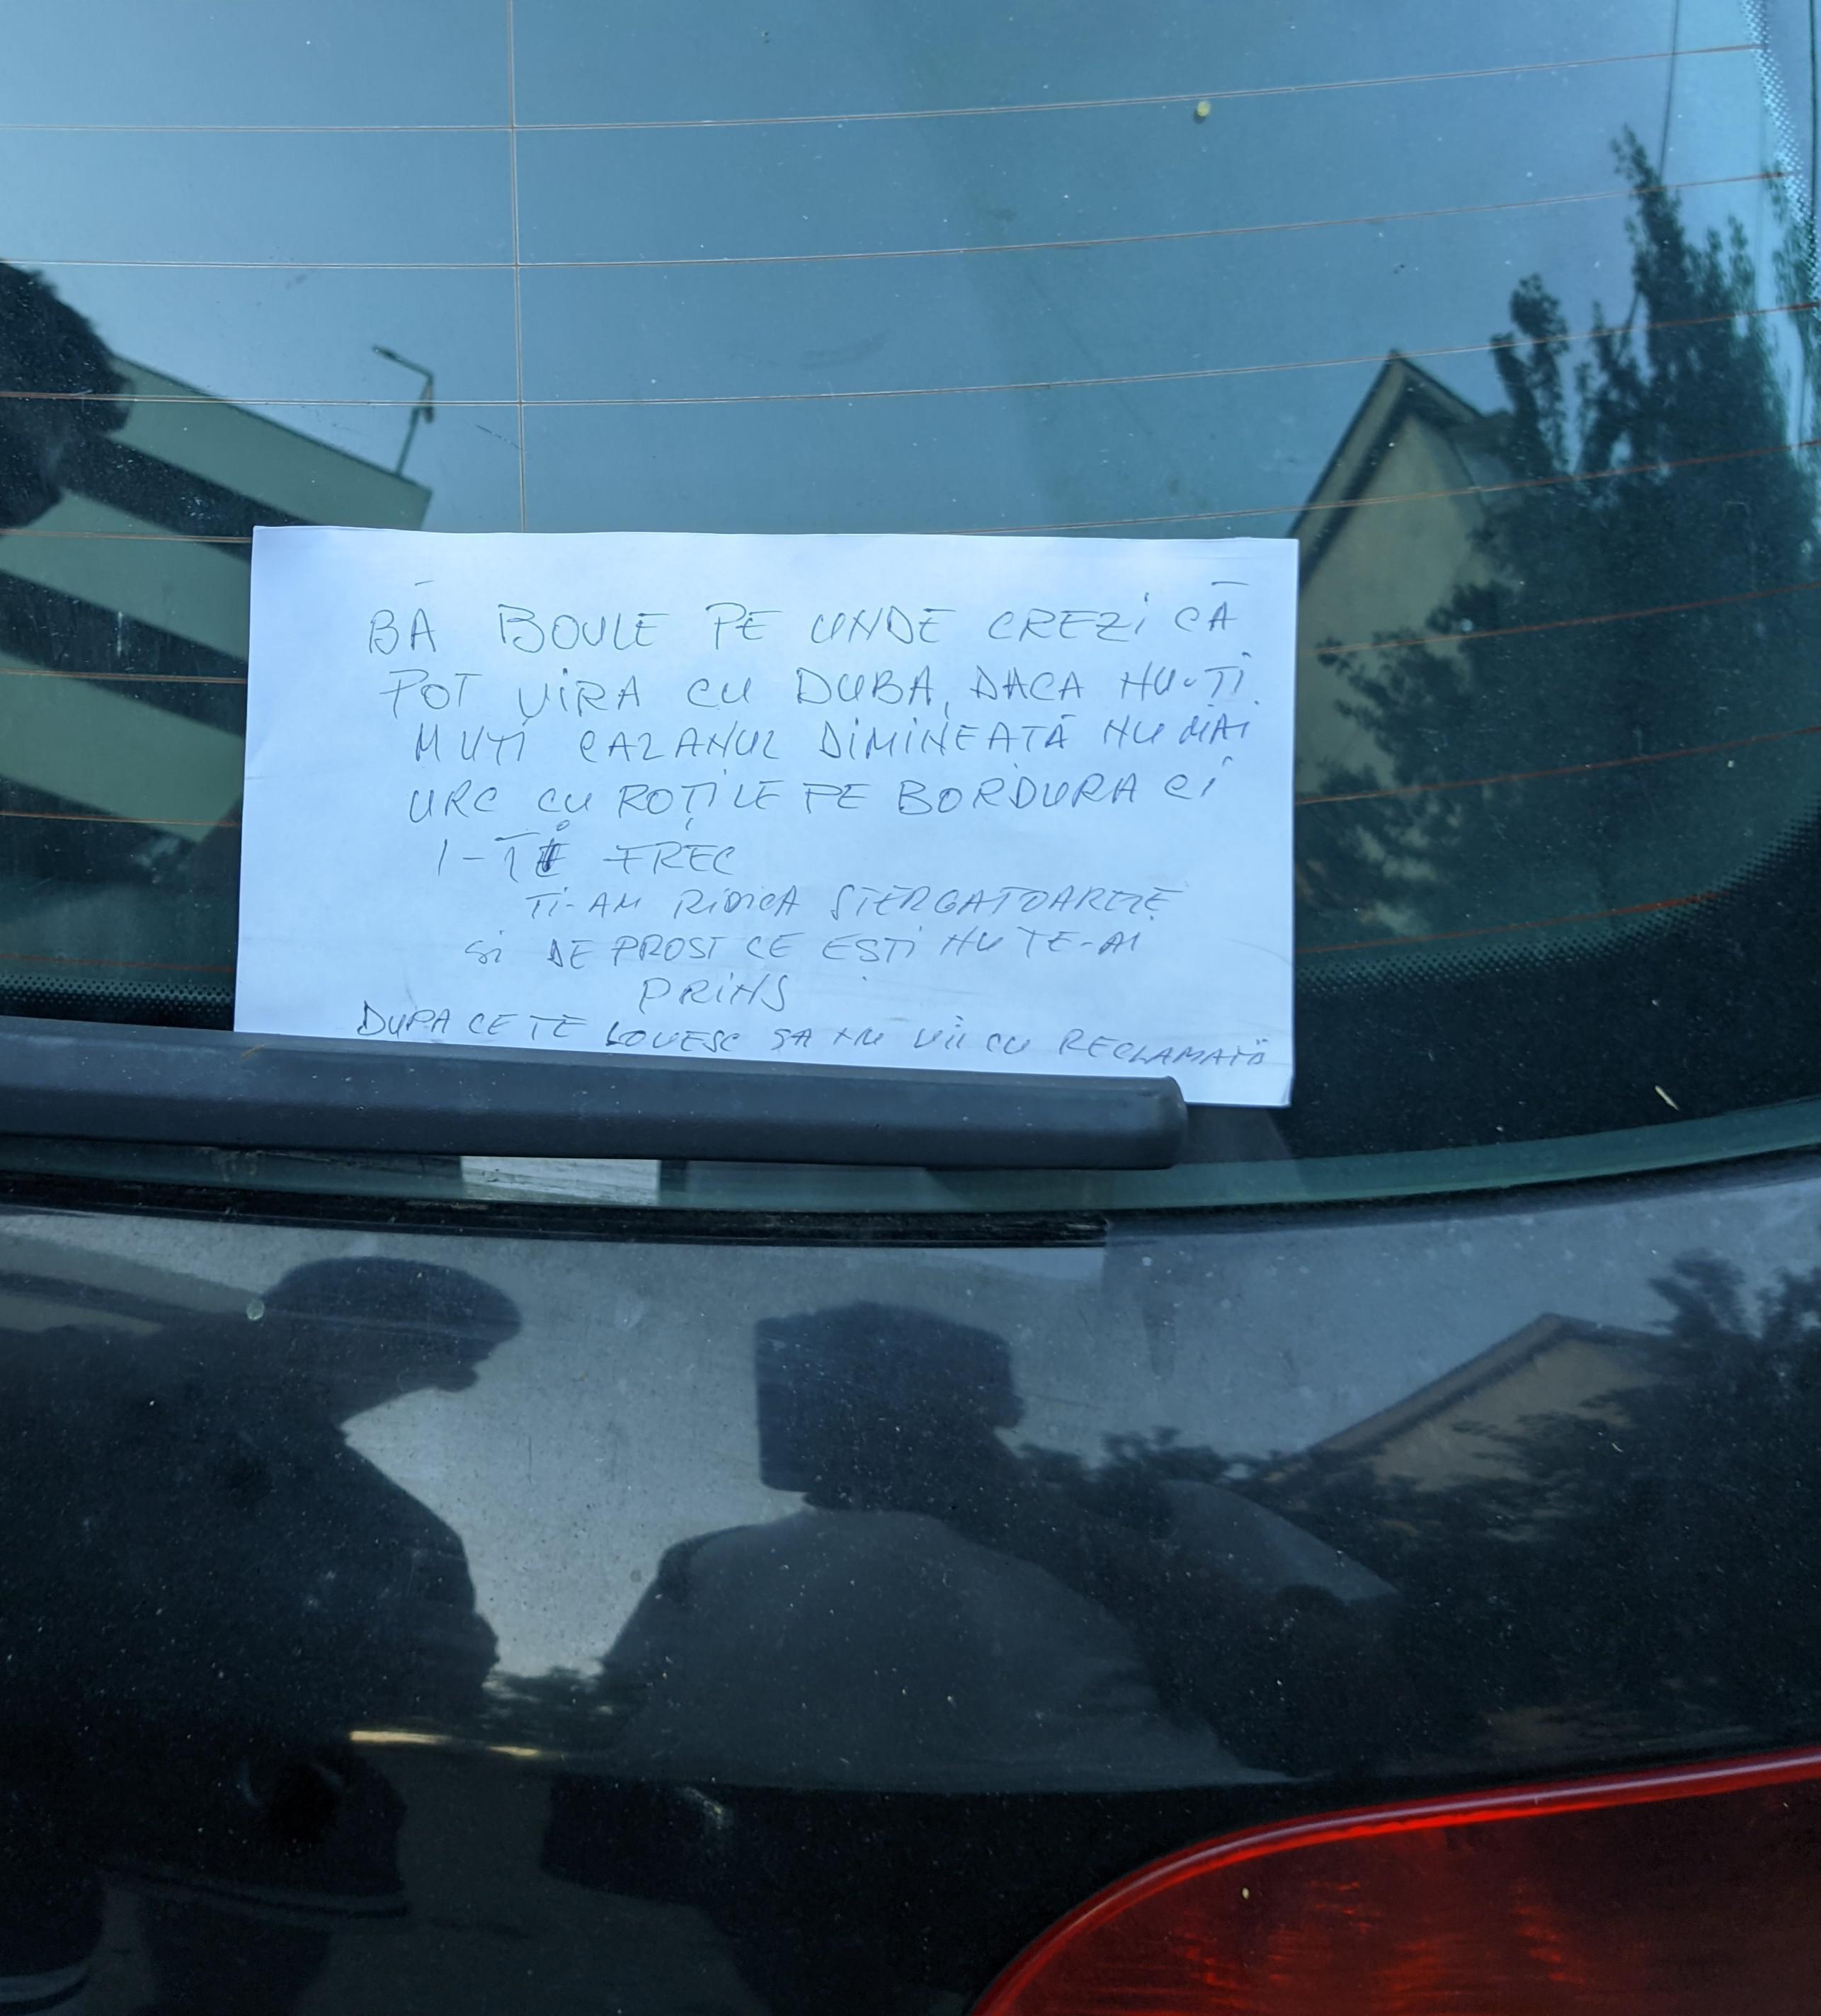 BĂ BOULE PE UNDE CREZI CĂ
POT VIRA CU DUBA, DACA NU-ȚI
MUȚI CAZANUL DIMINEAȚĂ NU MAI
URC CU ROȚILE PE BORDURA CI
I-TE FREC
TI-AM RIDICA STERGATOARELE
SI DE PROST CE EȘTI NU TE-AI
PRINS
DUPA CE TE LOVESC SA NU VII CU RECLAMATII